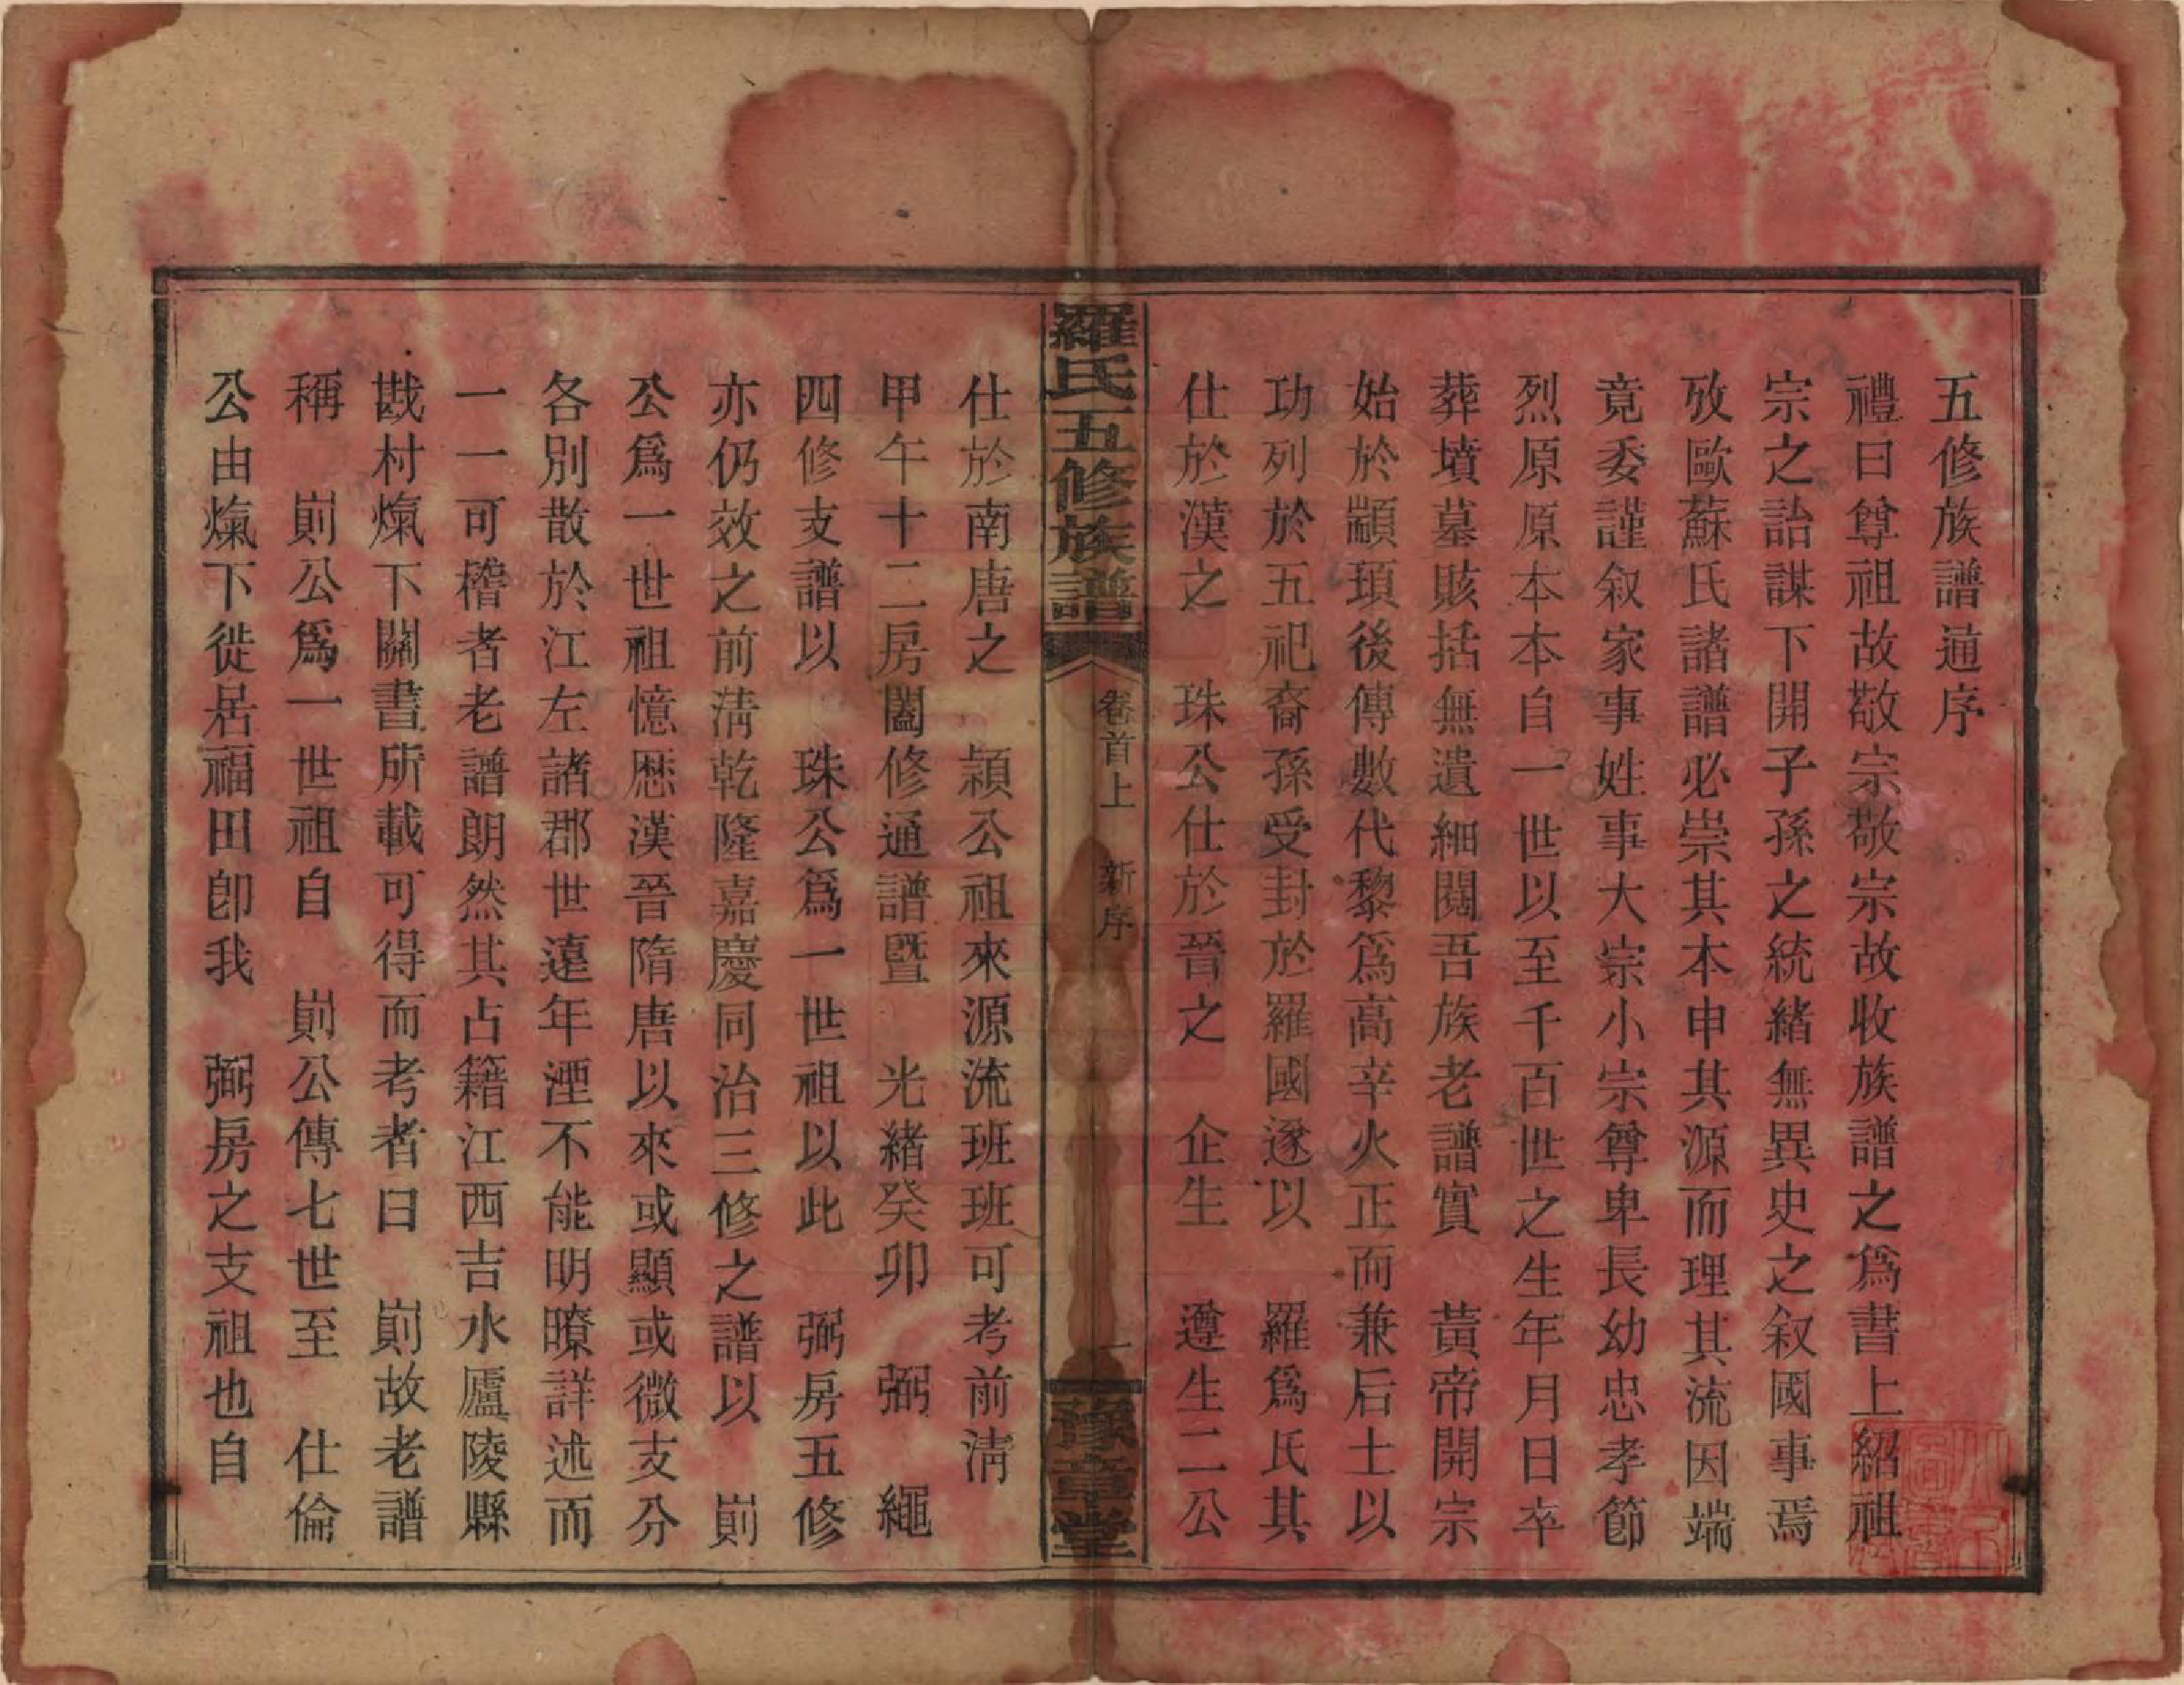 五修族譜通序
禮曰尊祖故敬宗敬宗故收族譜之爲書上紹祖
宗之詒謀下開子孫之統緒無異史之叙國事焉
攷歐蘇氏諸譜必崇其本申其源而理其流因端
竟委謹叙家事姓事大宗小宗尊卑長幼忠孝節
烈原原本本自一世以至千百世之生年月日卒
葬墳墓賅括無遺細閱吾族老譜實　黃帝開宗
始於顓頊後傳數代黎爲高辛火正而兼后土以
功列於五祀裔孫受封於羅國遂以　羅爲氏其
仕於漢之　珠公仕於晉之　企生　遵生二公
羅氏五修族譜
卷首上　新序
一
豫章堂
仕於南唐之　頴公祖來源流班班可考前淸
甲午十二房闔修通譜暨　光緒癸卯　弼　繩
四修支譜以　珠公爲一世祖以此　弼房五修
亦仍效之前淸乾隆嘉慶同治三修之譜以　崱
公爲一世祖憶歷漢晉隋唐以來或顯或微支分
各別散於江左諸郡世遠年湮不能明瞭詳述而
一一可稽者老譜朗然其占籍江西吉水廬陵縣
戡村㷰下關書所載可得而考者曰　崱故老譜
稱　崱公爲一世祖自　崱公傳七世至　仕倫
公由㷰下徙居福田卽我　弼房之支祖也自